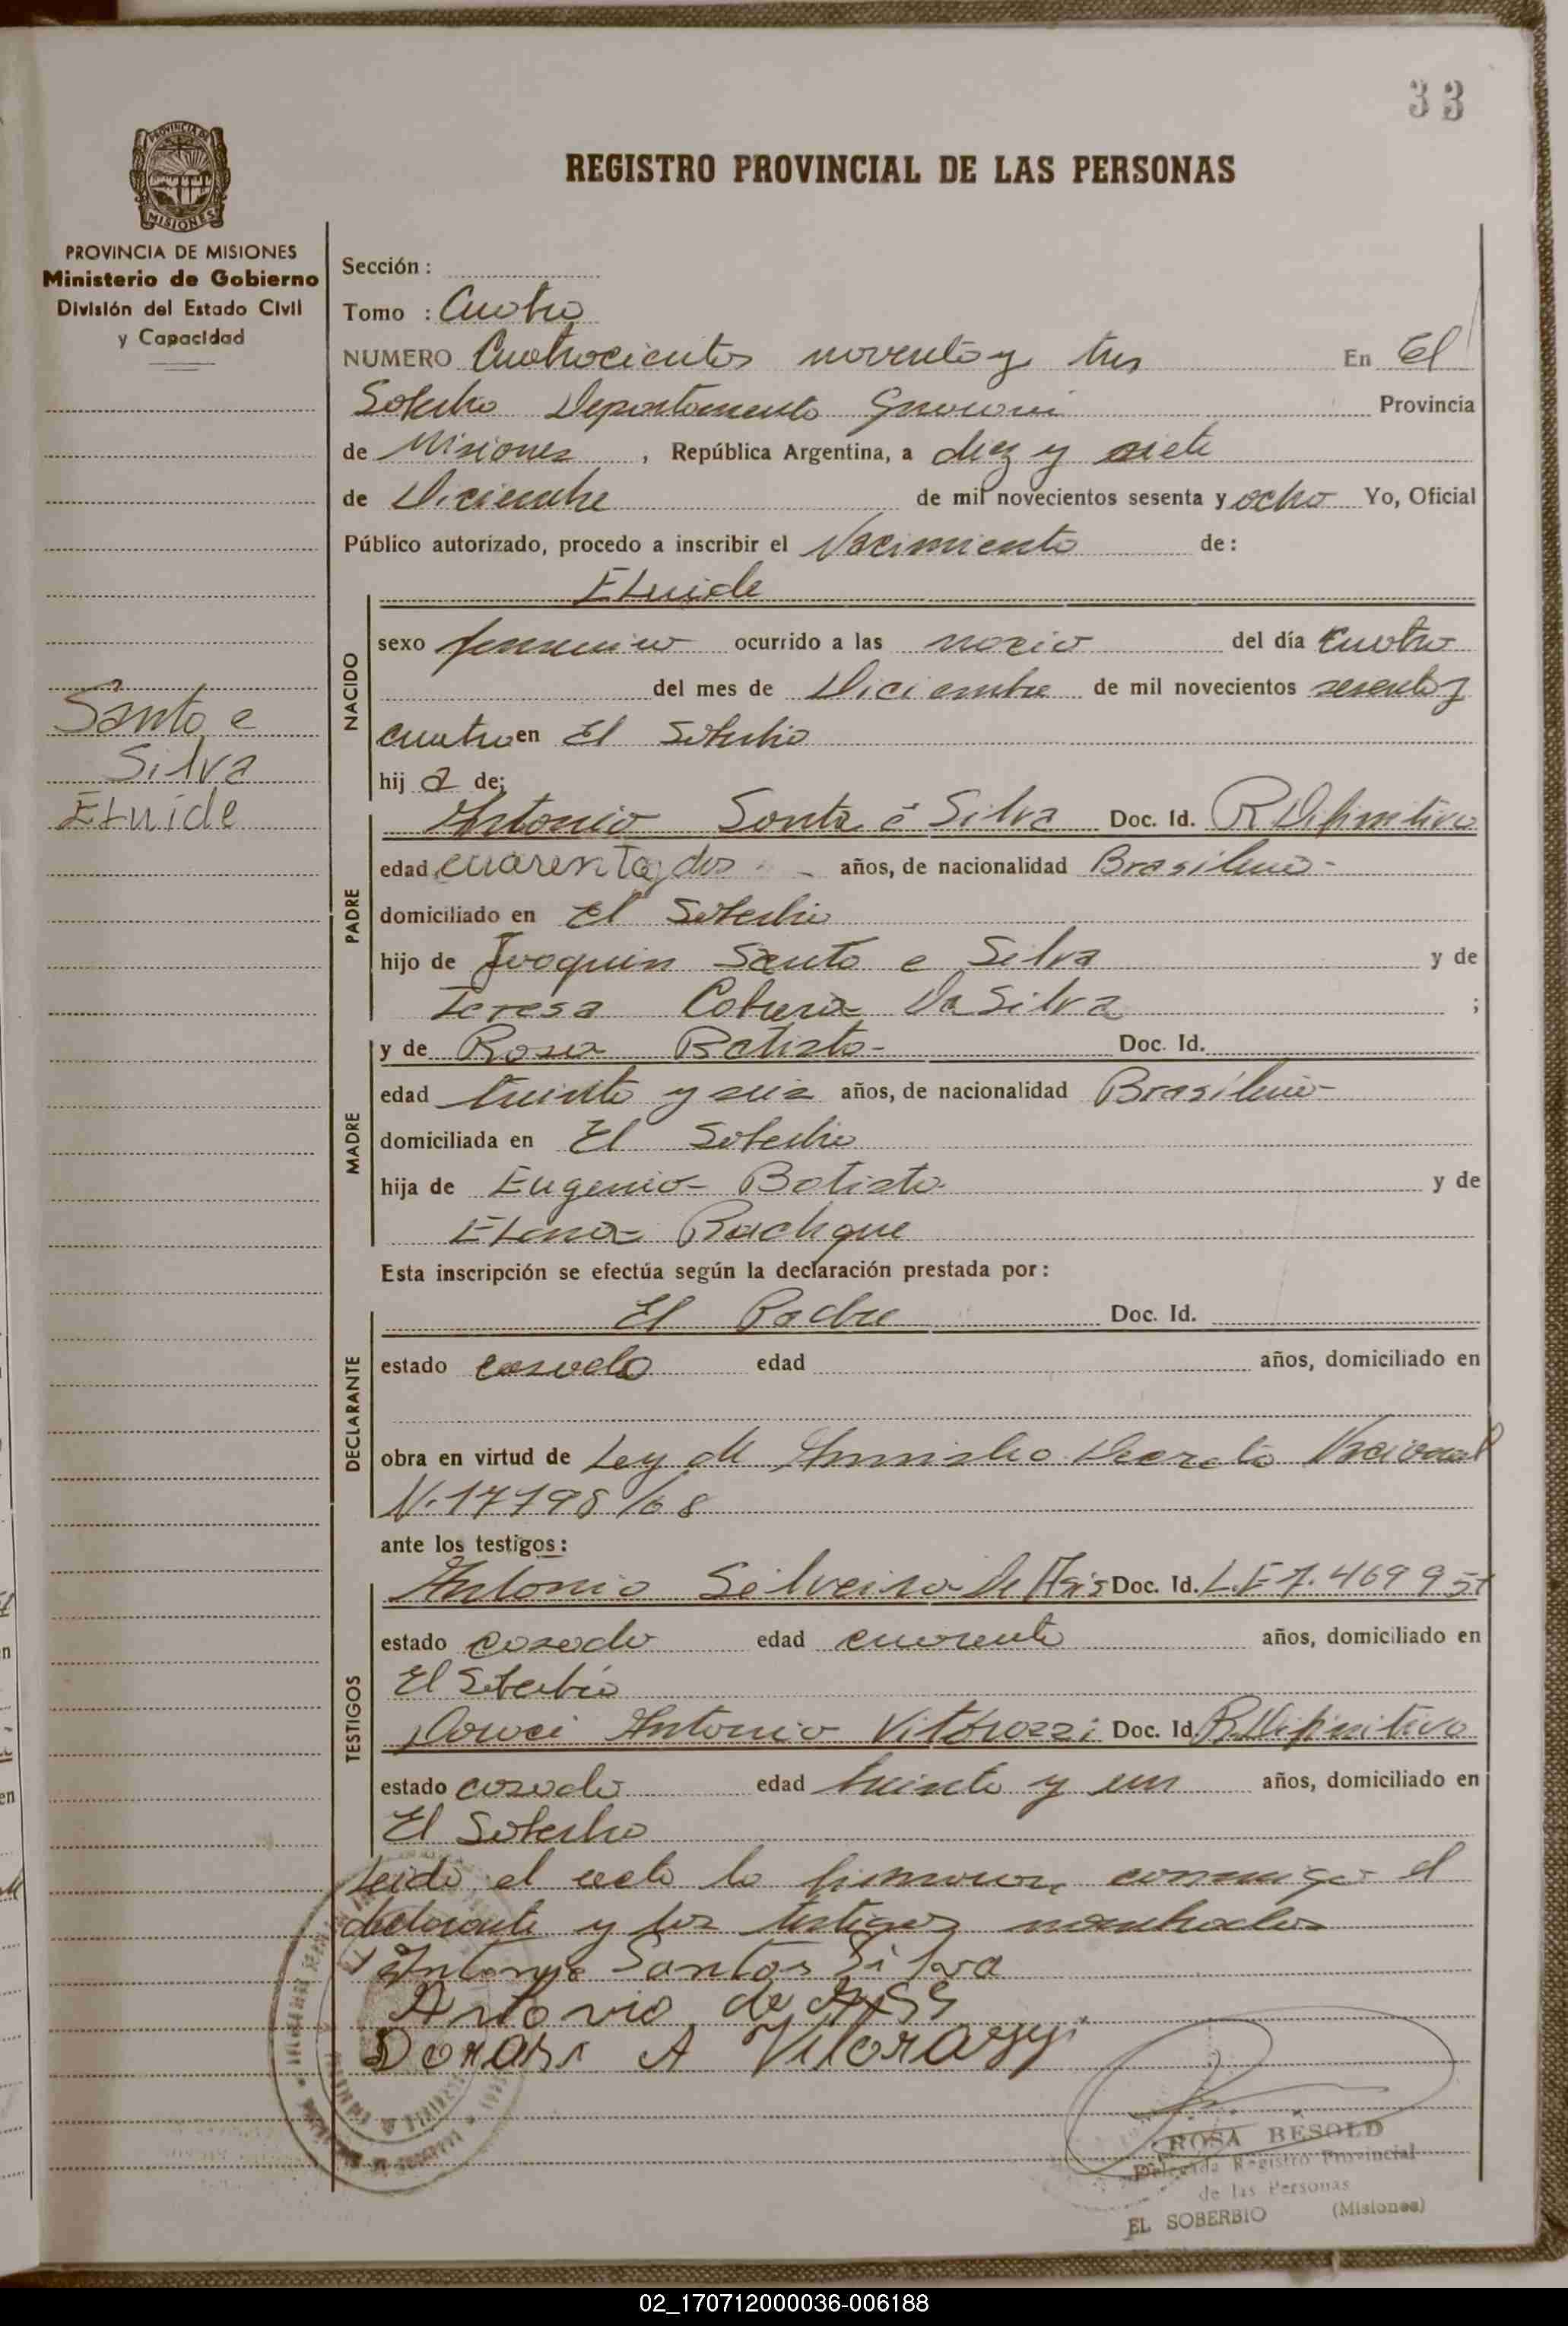 33
REGISTRO PROVINCIAL DE LAS PERSONAS
PROVINCIA DE MISIONES
Ministerio de Gobierno
División del Estado Civil
y Capacidad
Sección :
Tomo : Cuatro
NUMERO Cuatrocientos noventa y tres En El
Soberbio Departamento Guarani Provincia
de Misiones , República Argentina, a diez y siete
de Diciembre de mil novecientos sesenta y ocho Yo, Oficial
Público autorizado, procedo a inscribir el Nacimiento de:
Eluide
NACIDO
sexo femenino ocurrido a las del día cuatro
del mes de Diciembre de mil novecientos sesenta y
cuatro en El Soberbio
Santo e
Silva
Eluide
hij a de:
PADRE
Antonio Santo e Silva Doc. Id. R Difinitiva
edad cuarenta y dos años, de nacionalidad Brasilero
domiciliado en El Soberbio
hijo de Joaquin Santo e Silva y de
Teresa Da Silva ;
MADRE
y de Rosa Batista Doc. Id.
edad treinta y seis años, de nacionalidad Brasilera
domiciliada en El Soberbio
hija de Eugenio Batista y de
Elena
Esta inscripción se efectúa según la declaración prestada por:
DECLARANTE
El Padre Doc. Id.
estado casado edad años, domiciliado en
obra en virtud de Ley de Amnistia Decreto Nacional
N. 17795/68
ante los testigos:
TESTIGOS
Antonio Silveira de Asis Doc. Id. L.E 7.469951
estado casado edad cuarenta años, domiciliado en
El Soberbio
Antonio Vitorazzi Doc. Id. R Difinitiva
estado casado edad treinta y un años, domiciliado en
El Soberbio
Leida el acta la firmaron conmigo el
declarante y los testigos nombrados
Antonio Santos Silva
Antonio de
A Vitorazzi
ROSA BESOLD
Delegada Registro Provincial
de las Personas
EL SOBERBIO (Misiones)
02_170712000036-006188